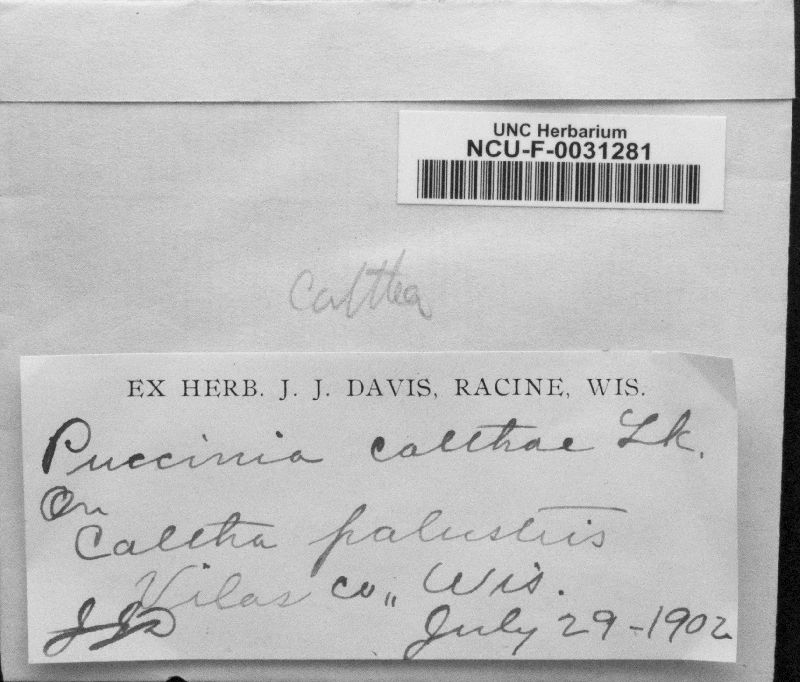 UNC Herbarium
NCU-F-0031281
Caltha
EX HERB. J. J. DAVIS, RACINE, WIS.
Puccinia calthae Lk.
On
Caltha palustris
Vilas co., Wis.
JJD July 29-1902